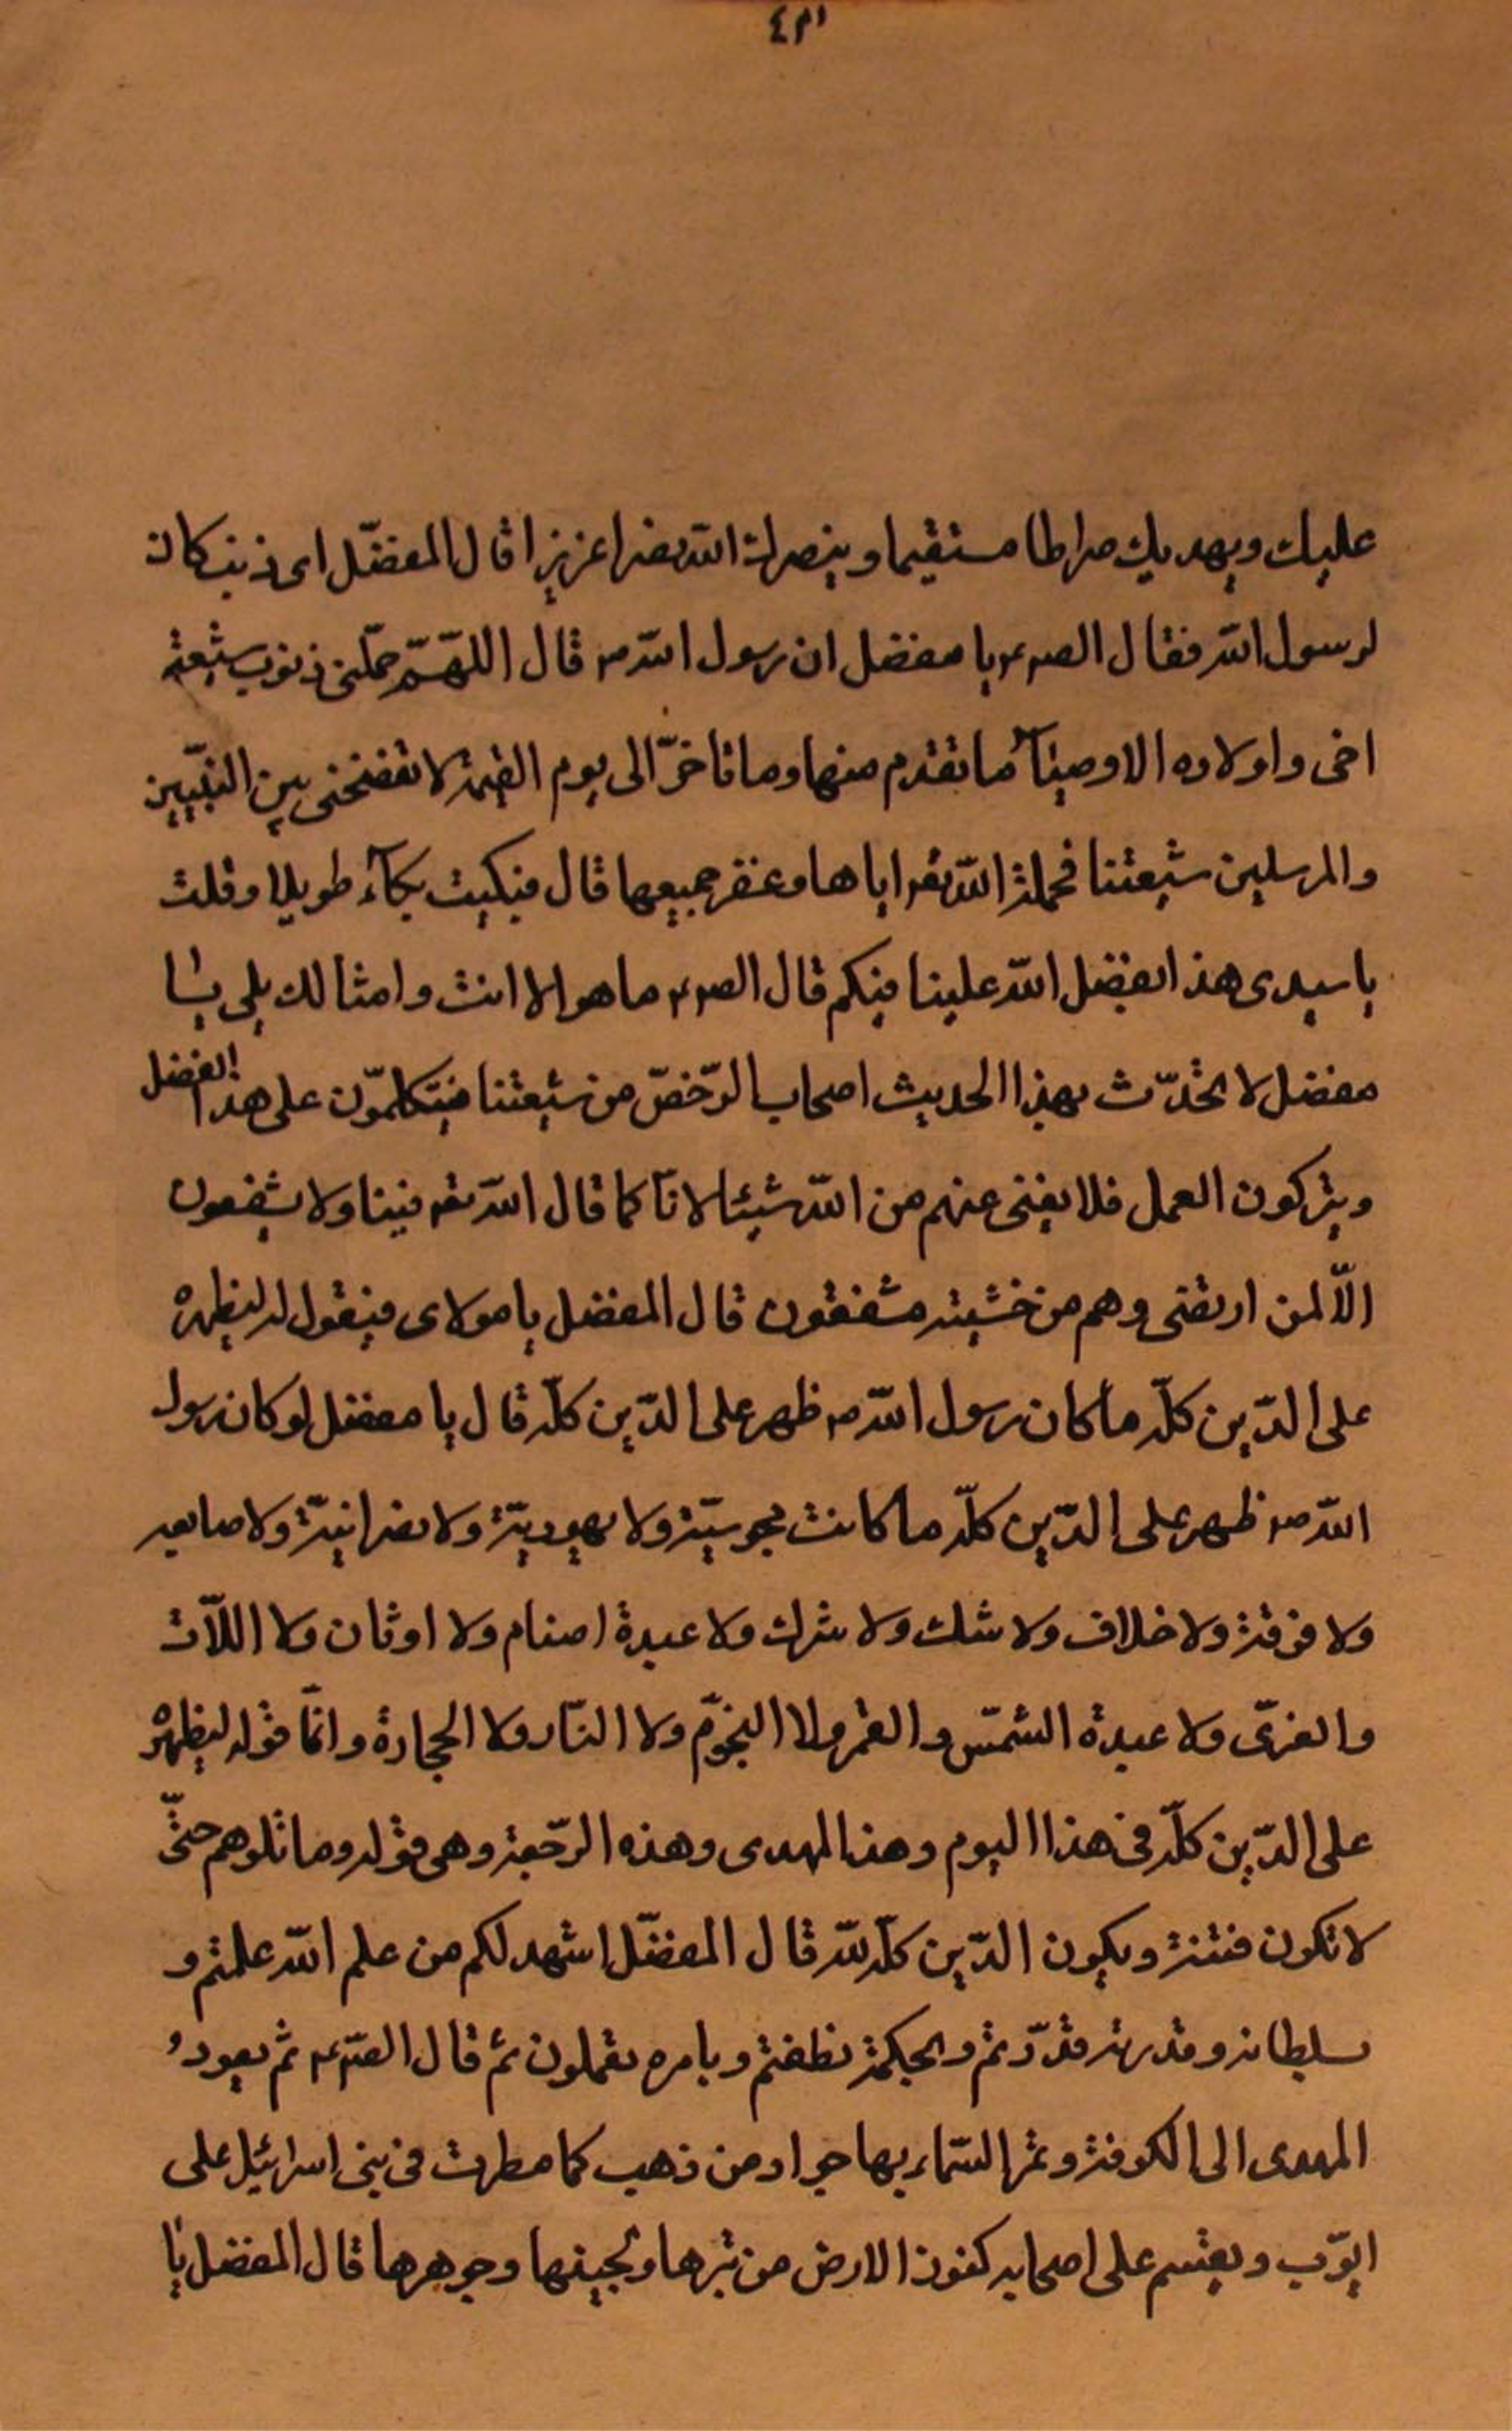 ٤٣١
عليك ويهديك صراطا مستقيما وينصرك الله نصرا عزيزا قال المفضّل اى ذنب كان
لرسول الله فقال الصم يا مفضل ان رسول الله ص قال اللهمّ حمّلنى ذنوب شيعة
اخى واولاده الاوصيآء ما تقدم منها وما تاخرّ الى يوم القيمة لا تفضحنى بين النبّيين
والمرسلين شيعتنا فحملة الله تع اياها وغفر جميعها قال فبكيت بكآء طويلا وقلت
يا سيدى هذا بفضل الله علينا فيكم قال الصم ما هو الا انت وامثالك بلى يا
مفضل لا تحدّث بهذا الحديث اصحاب الرّخص من شيعتنا فيتكلموّن على هذا الفضل
ويتركون العمل فلا يغنى عنهم من الله شيئا لانّا كما قال الله تع فينا ولا يشفعون
الّا لمن ارتضى وهم من خشيته مشفقون قال المفضل يا مولاى فيقول له ليظهره
على الدّين كلّه ما كان رسول الله ص ظهر على الدّين كلّه قال يا مفضل لو كان رسول
الله ص ظهر على الدّين كلّه ما كانت مجوسيّة ولا يهوديّة ولا نصرانيّة ولا صابيه
ولا فرقة ولا خلاف ولا شك ولا شرك ولا عبدة اصنام ولا اوثان ولا اللّات
والعزىّ ولا عبدة الشمّس والقمر ولا النجوّم ولا النّار ولا الحجارة وانمّا قوله ليظهره
على الدّين كلّه فى هذا اليوم وهذا المهدى وهذه الرّجعة وهى قوله وما تلوهم حتّى
لا تكون فتنة ويكون الدّين كلّه لله قال المفضّل اشهد لكم من علم الله علمتم و
سلطانه وقدرته قدّرتم وبحكمة نطقتم وبامره تعملون ثم قال الصّم ثم يعود
المهدى الى الكوفة وتمر السّماء بها جرادمن ذهب كما مطرت فى بنى اسرائيل على
ايّوب ويقسم على اصحابه كنوز الارض من تبرها ولجينها وجوهرها قال المفضل يا